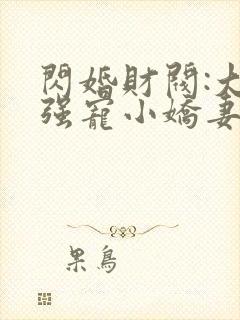 閃婚財閥:大
強寵小嬌妻
果鳥